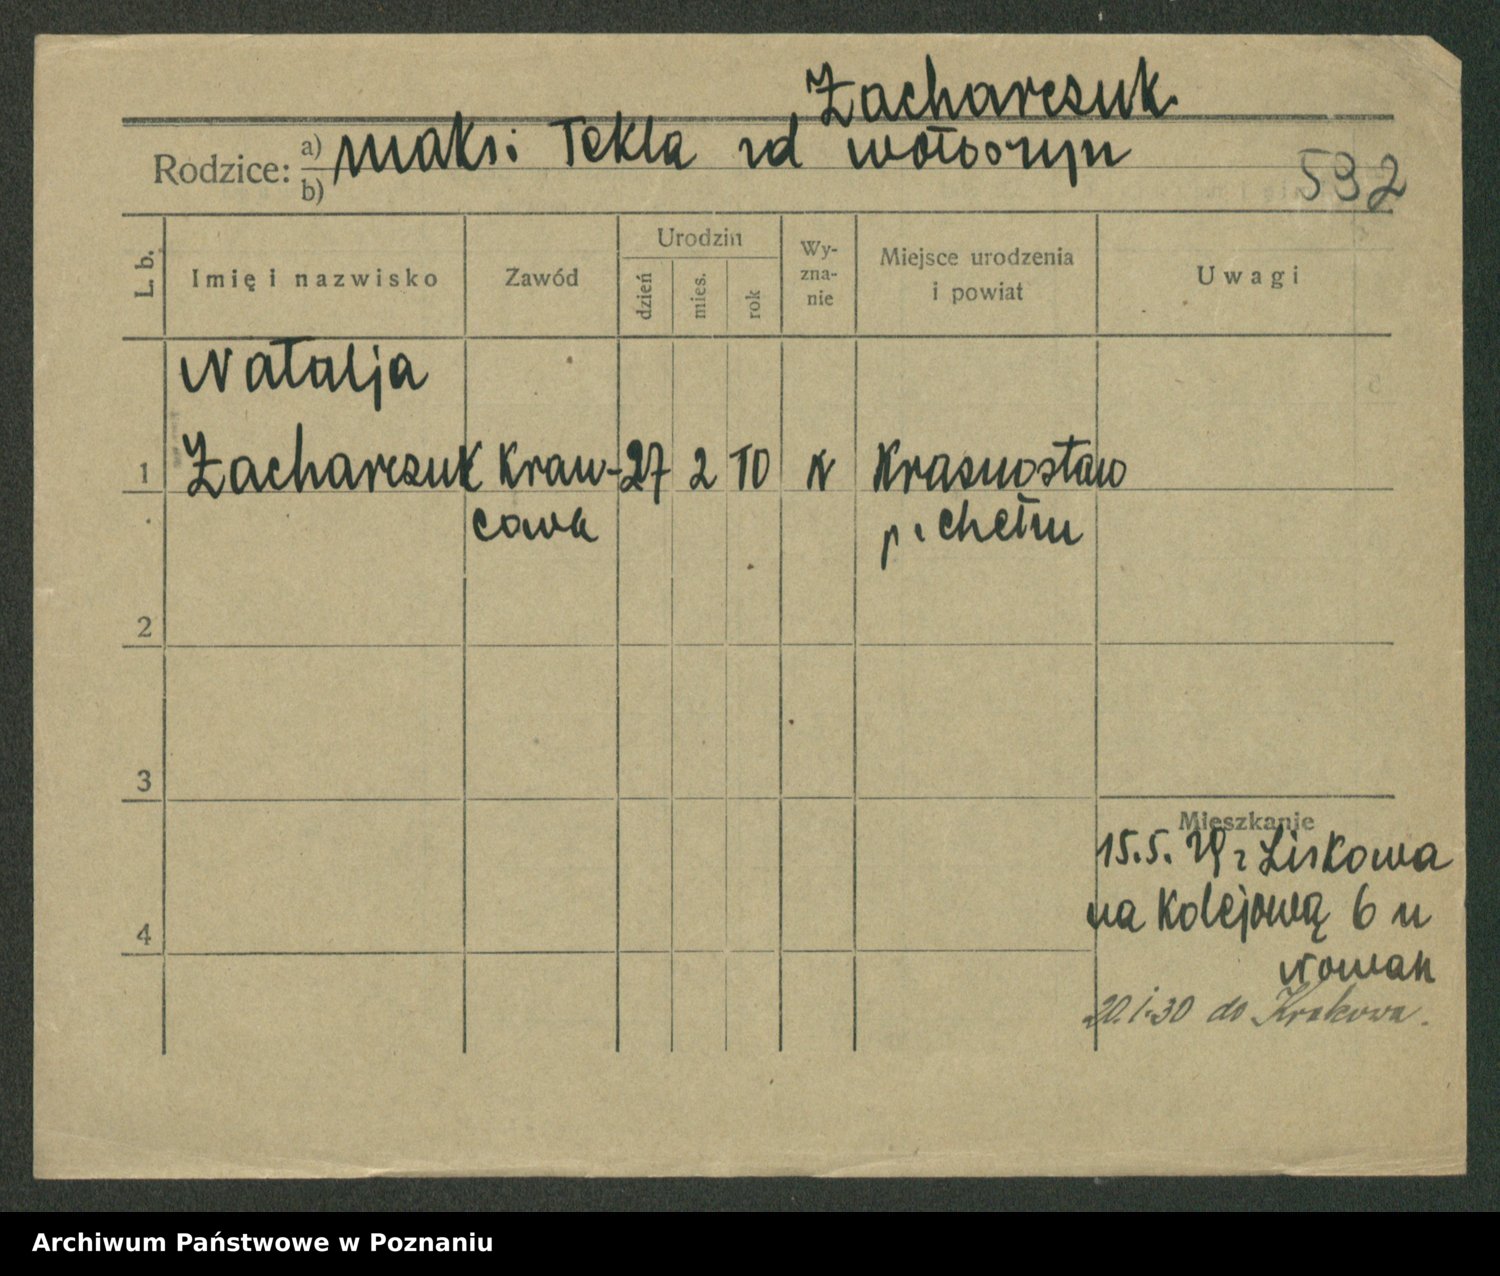 Zacharczuk
Rodzice: a) maks i Tekla zd
b)
532
L. b. Imię i nazwisko Zawód Urodzin dzień mies. rok Wy-zna-nie Miejsce urodzenia i powiat Uwagi
Natalja
1 Zacharczuk Kraw- 27 2 10 K Krasnostaw
cowa p. Chełm
2
3
Mieszkanie
15.5. 29 z Liskowa
na Kolejową 6 u
4
Nowak
20.1.30 do Krakowa.
Archiwum Państwowe w Poznaniu